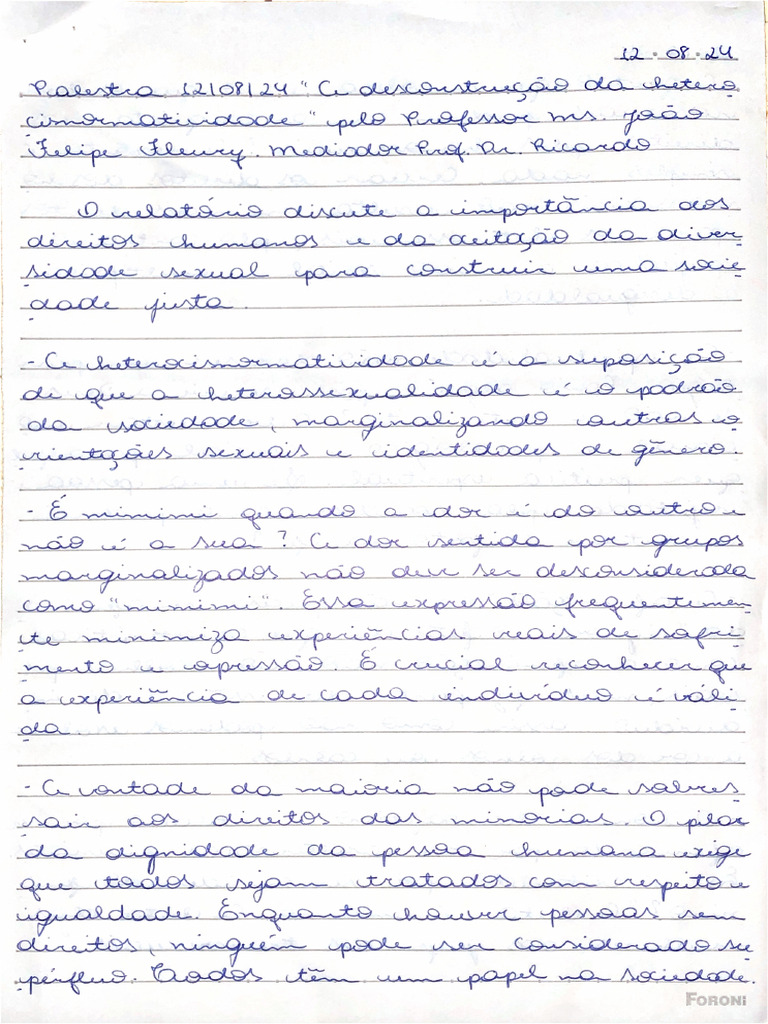 12.08.24
Palestra 12/08/24 "A desconstrução da hetero
cisnormatividade" pelo Professor Ms. João
Felipe Fleury. Mediador Prof. Dr. Ricardo
O relatório discute a importância dos
direitos humanos e da aceitação da diver-
sidade sexual para construir uma socie-
dade justa.
- A heterocisnormatividade é a suposição
de que a heterossexualidade é o padrão
da sociedade, marginalizando outras o-
rientações sexuais e identidades de gênero.
- É mimimi quando a dor é do outro e
não é a sua? A dor sentida por grupos
marginalizados não deve ser desconsiderada
como "mimimi". Essa expressão frequentemen-
te minimiza experiências reais de sofri-
mento e opressão. É crucial reconhecer que
a experiência de cada indivíduo é váli-
da.
- A vontade da maioria não pode sobres-
sair aos direitos das minorias. O pilar
da dignidade da pessoa humana exige
que todos sejam tratados com respeito e
igualdade. Enquanto houver pessoas sem
direitos, ninguém pode ser considerado su-
pérfluo. Todos têm um papel na sociedade.
FORONI